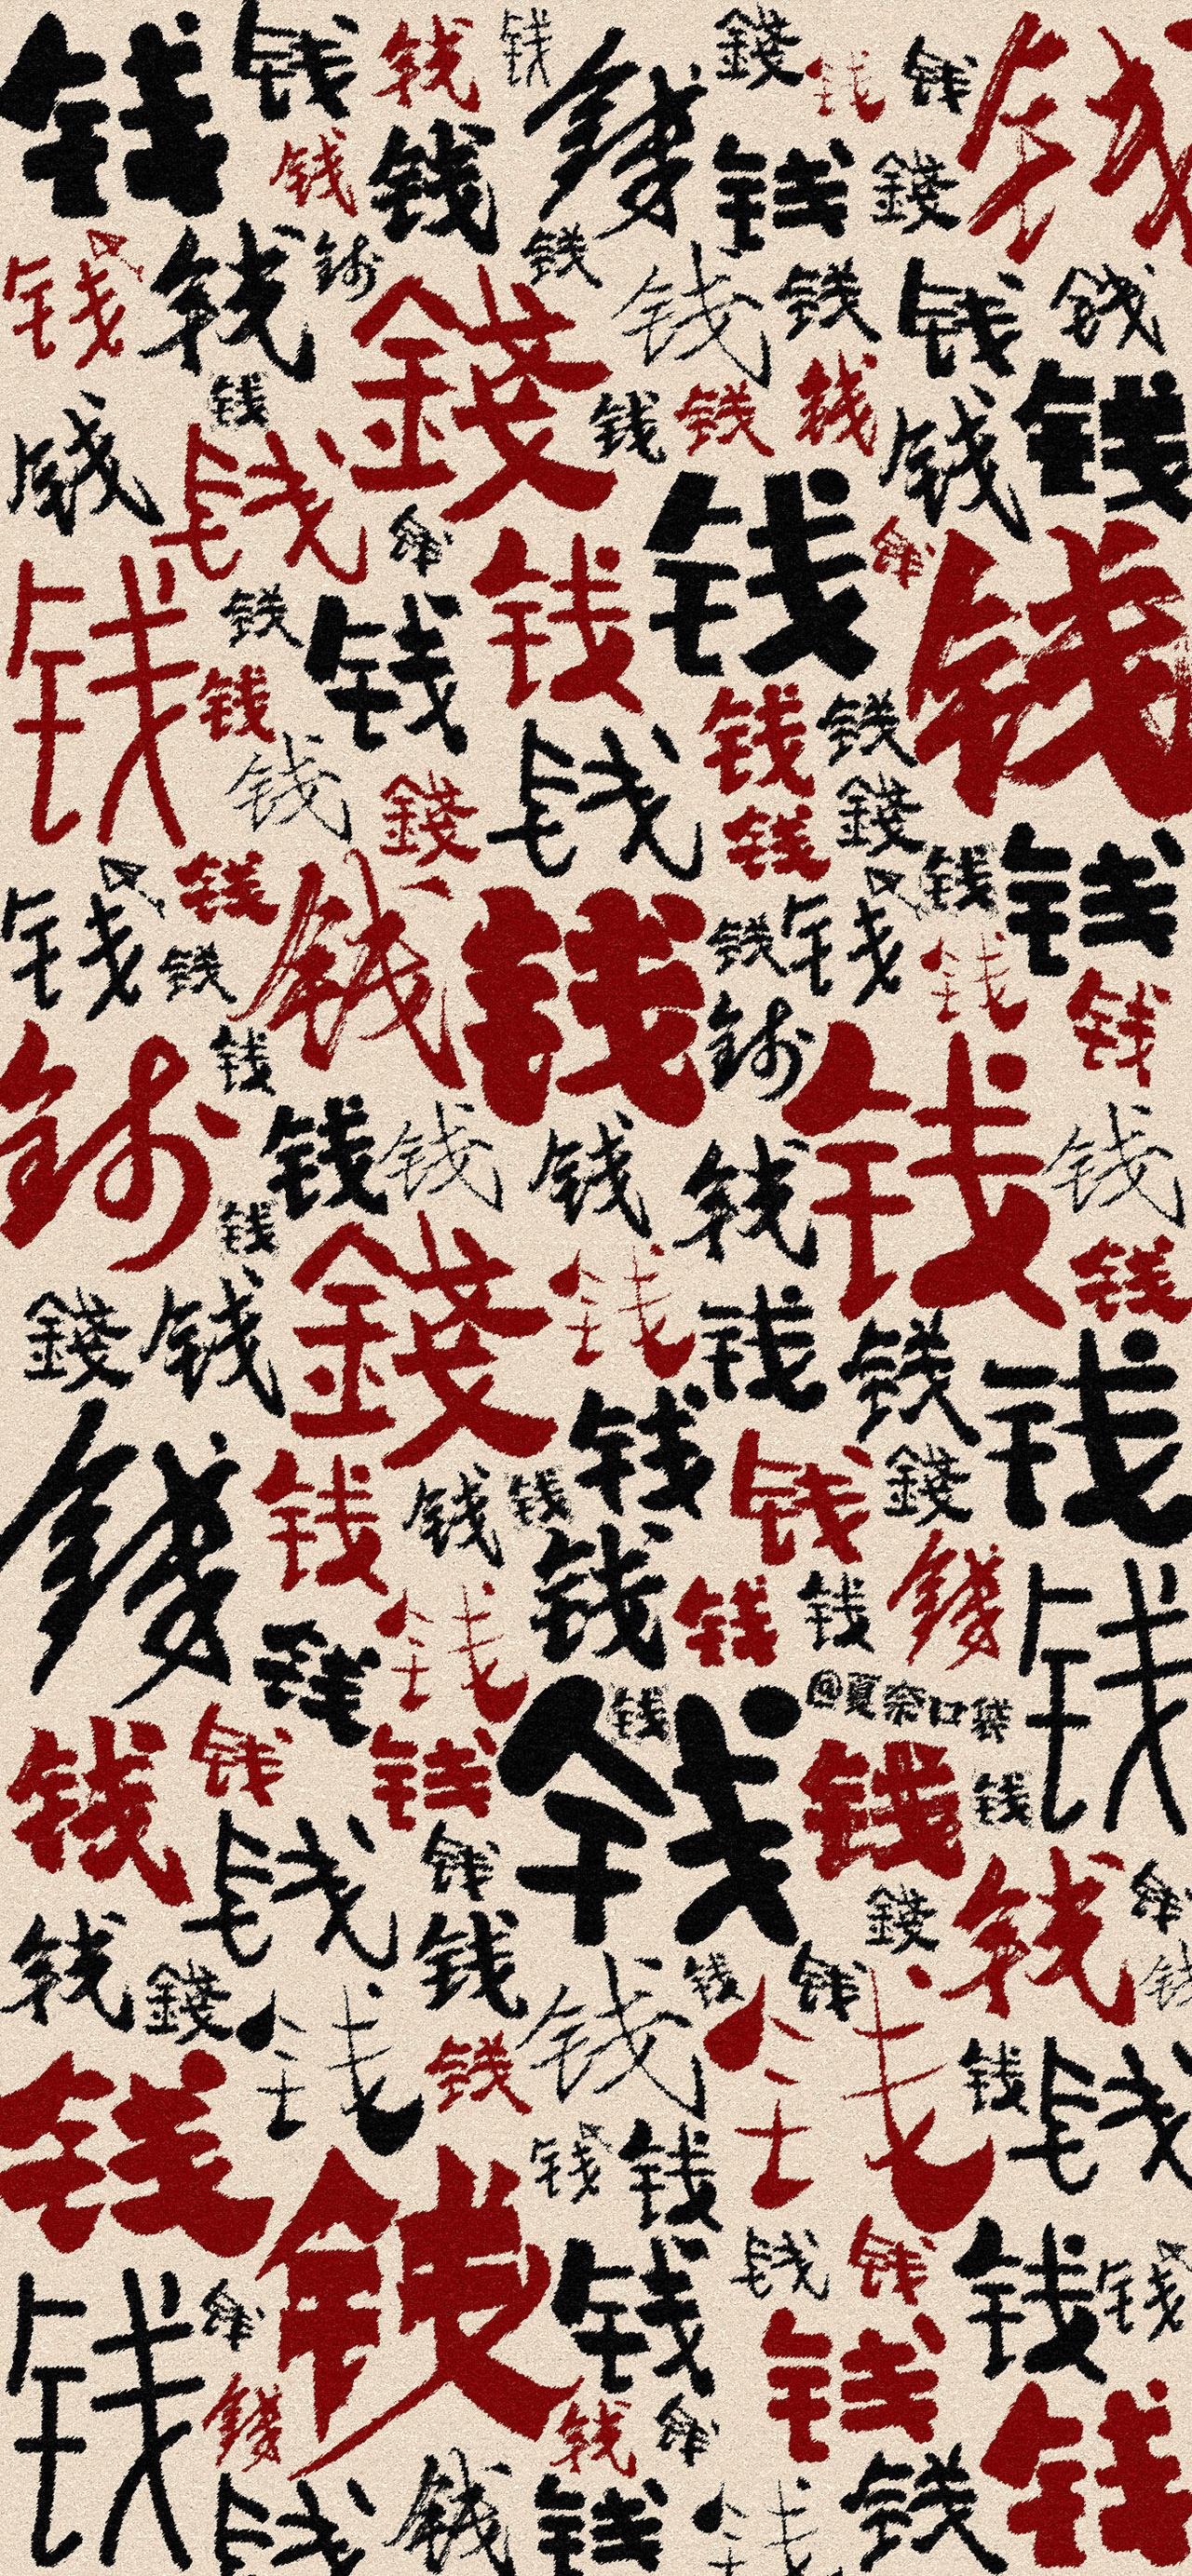 钱 钱 钱 钱 錢 錢 钱 钱 钱
钱 钱 钱 錢
钱 钱 钱 钱 錢 钱 钱 钱 钱
钱 钱 钱 钱 钱 钱
钱 钱 钱 钱
钱 钱 钱 钱 钱
钱 钱 钱 钱 钱
钱 錢 钱 钱 錢
钱 钱 钱 钱 钱 钱 钱 钱
钱 钱 钱 钱
钱 钱 钱 钱 钱
钱 钱 钱 钱 钱
钱 錢 钱 钱
錢 钱 钱 钱 钱
錢 钱 钱 钱 钱 钱 錢
钱 钱 钱 錢 钱
钱 钱 @夏奈口袋
钱 钱 钱 钱 钱 钱 钱
钱 钱 錢 钱 钱
钱 錢 钱 钱 钱 钱 钱 钱
钱 钱 钱 钱 钱
钱 钱 钱 钱
钱 钱 钱 钱 钱 钱 钱
钱 钱 钱 钱
錢 钱 钱 钱
钱 钱 钱 钱 钱